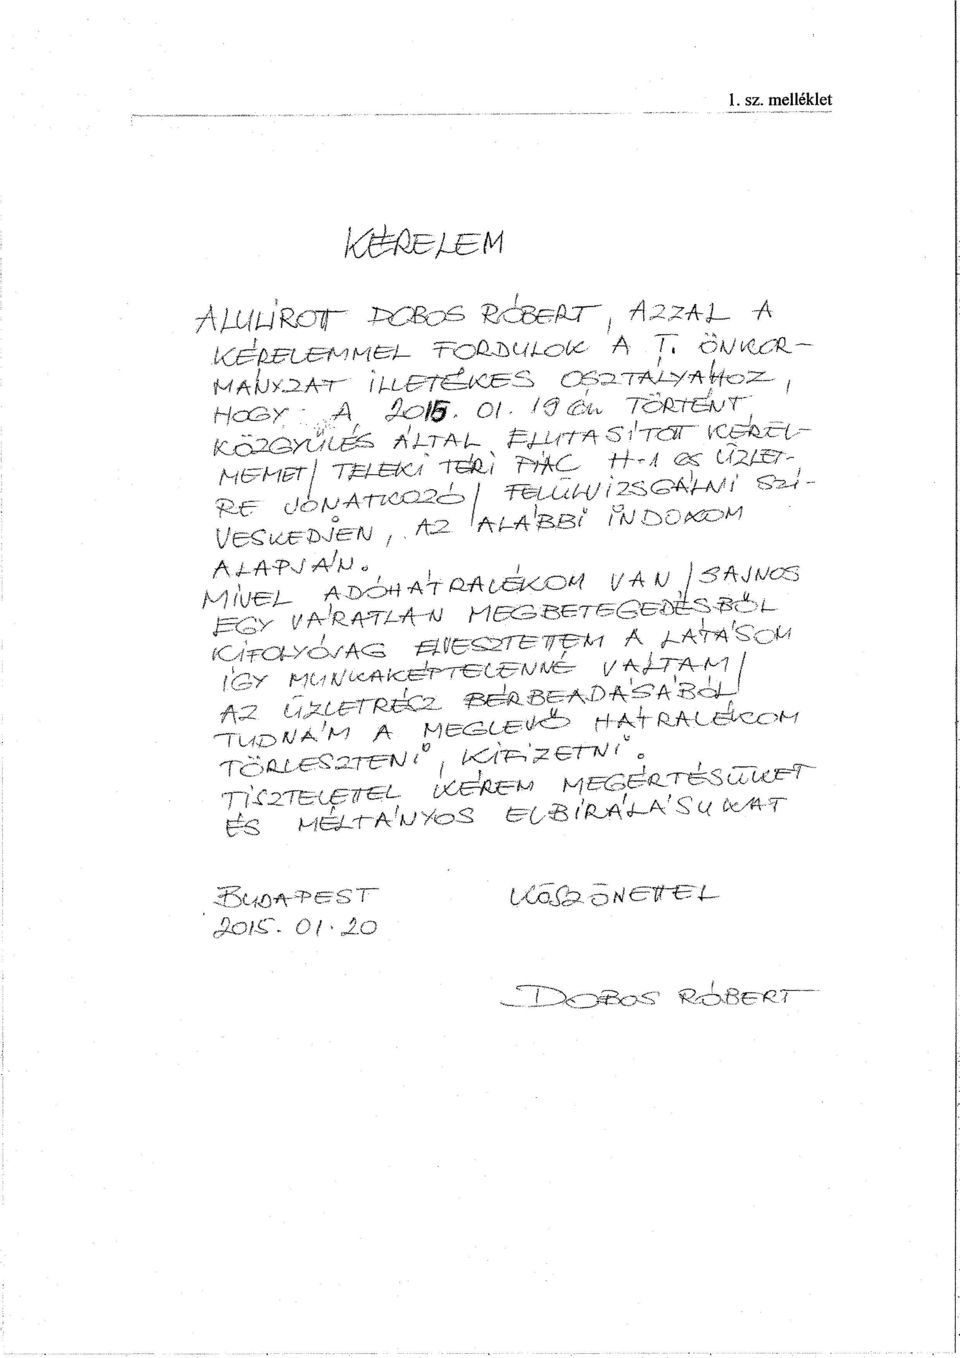 1. sz. melléklet
KÉRELEM
ALULÍROTT DOBOS RÓBERT, AZZAL A
KÉRELEMMEL FORDULOK A T. ÖNKOR-
MÁNYZAT ILLETÉKES OSZTÁLYÁHOZ,
HOGY A 2015. 01. 19 én TÖRTÉNT
KÖZGYÜLÉS ÁLTAL ELUTASÍTOTT KÉREL-
MEMET / TELEKI TÉRI PIAC H-1 es ÜZLET-
RE VONATKOZÓ / FELÜLVIZSGÁLNI SZÍ-
VESKEDJEN, AZ ALÁBBI INDOKOM
ALAPJÁN.
MIVEL ADÓHÁTRALÉKOM VAN / SAJNOS
EGY VÁRATLAN MEGBETEGEDÉSBŐL
KIFOLYÓLAG ELVESZTETTEM A LÁTÁSOM
IGY MUNKAKÉPTELENNÉ VÁLTAM /
AZ ÜZLETRÉSZ BÉRBEADÁSÁBÓL
TUDNÁM A MEGLEVŐ HÁTRALÉKOM
TÖRLESZTENI, KIFIZETNI.
TISZTELETTEL KÉREM MEGÉRTÉSÜKET
ÉS MÉLTÁNYOS ELBIRÁLÁSUKAT
BUDAPEST KÖSZÖNETTEL
2015. 01. 20
DOBOS RÓBERT